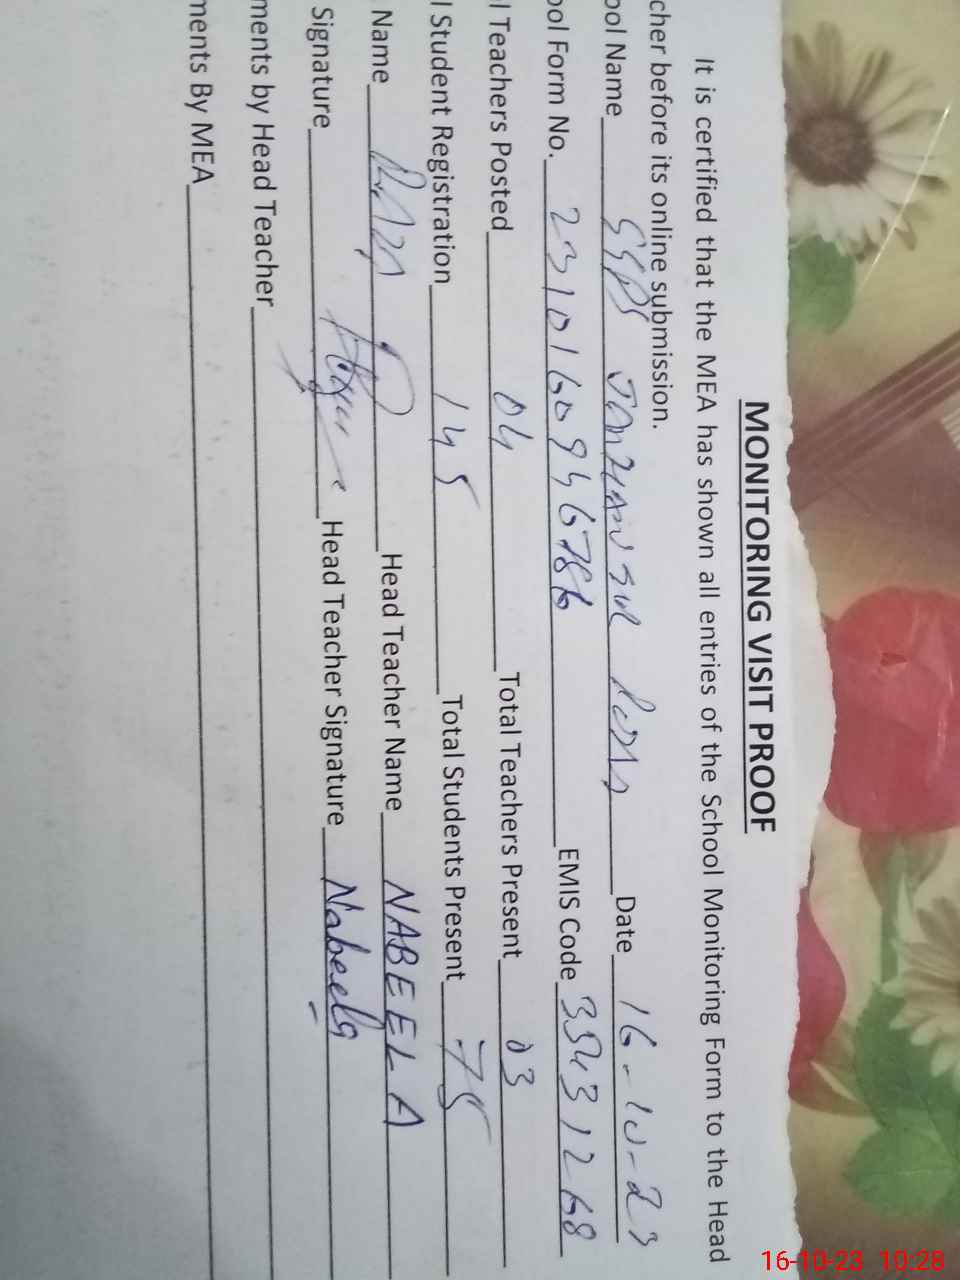 MONITORING VISIT PROOF
It is certified that the MEA has shown all entries of the School Monitoring Form to the Head
cher before its online submission.
ool Name GGPS Date 16-10-23
ool Form No. EMIS Code 35431268
l Teachers Posted 04 Total Teachers Present 03
l Student Registration 145 Total Students Present 75
Name Head Teacher Name NABEELA
Signature Head Teacher Signature Nabeela
ments by Head Teacher
ments By MEA
16-10-23 10:28